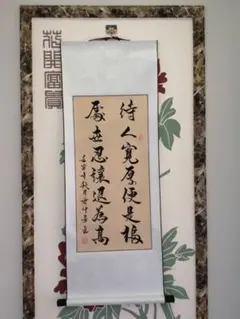 待人寬厚便是福
處世忍讓退為高
花開富貴